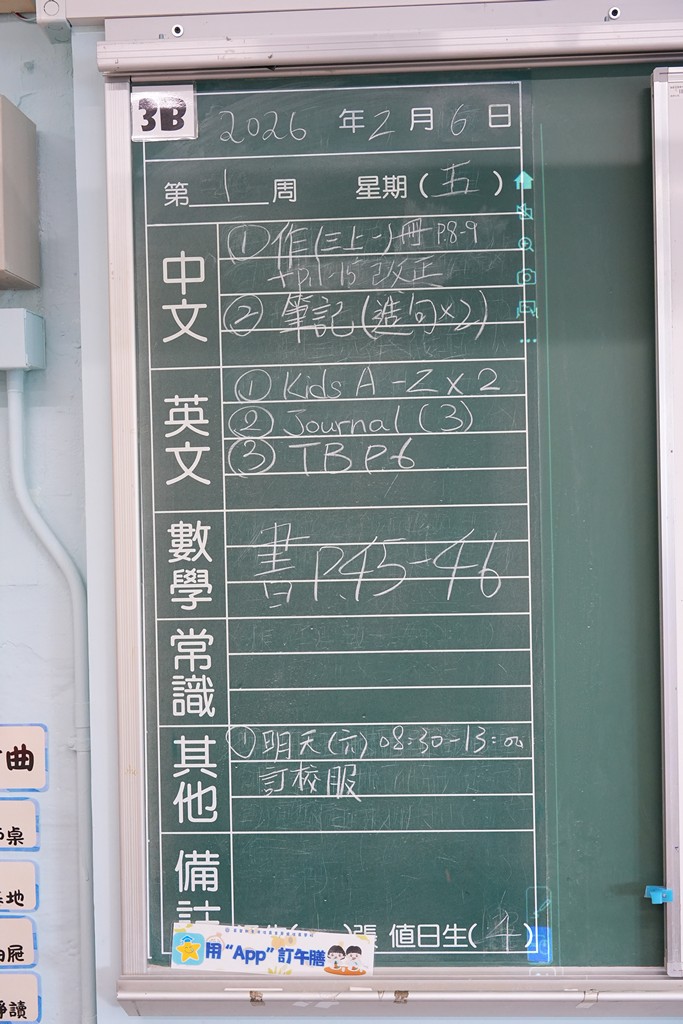 3B
2026 年 2 月 6 日
第 1 周 星期 ( 五 )
中文
① 作(三上一)冊 P.8-9
+ P.1-15 改正
② 筆記(造句×2)
英文
① Kids A-Z x 2
② Journal (3)
③ TB P.6
數學
書 P.45-46
常識
其他
① 明天(六) 08:30-13:00
訂校服
備註
張 值日生( )
用 "App" 訂午膳
曲
桌
地
讀